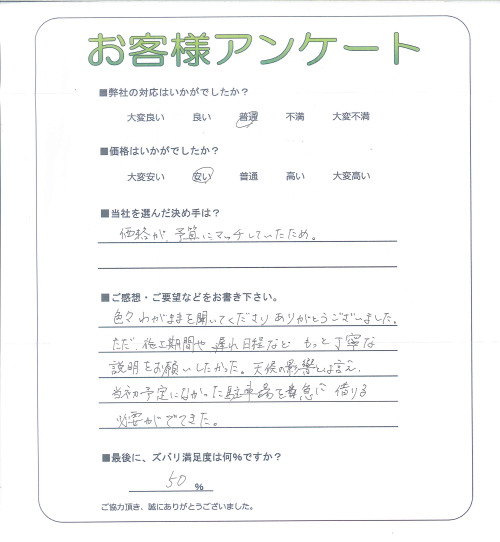 お客様アンケート
■弊社の対応はいかがでしたか?
大変良い 良い 普通 不満 大変不満
■価格はいかがでしたか?
大変安い 安い 普通 高い 大変高い
■当社を選んだ決め手は?
価格が、予算にマッチしていたため。
■ご感想・ご要望などをお書き下さい。
色々わがままを聞いてくださりありがとうございました。
ただ、施工期間や遅れ日程など もっと丁寧な
説明をお願いしたかった。天候の影響とは言え、
当初予定になかった駐車場を緊急に 借りる
必要がでてきた。
■最後に、ズバリ満足度は何%ですか?
50 %
ご協力頂き、誠にありがとうございました。